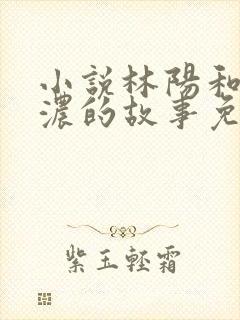 小説林陽和
濃的故事免
紫玉輕霜